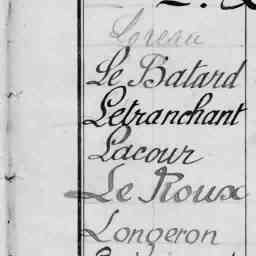 Loreau
Le Batard
Letranchant
Lacour
Le Roux
Longeron